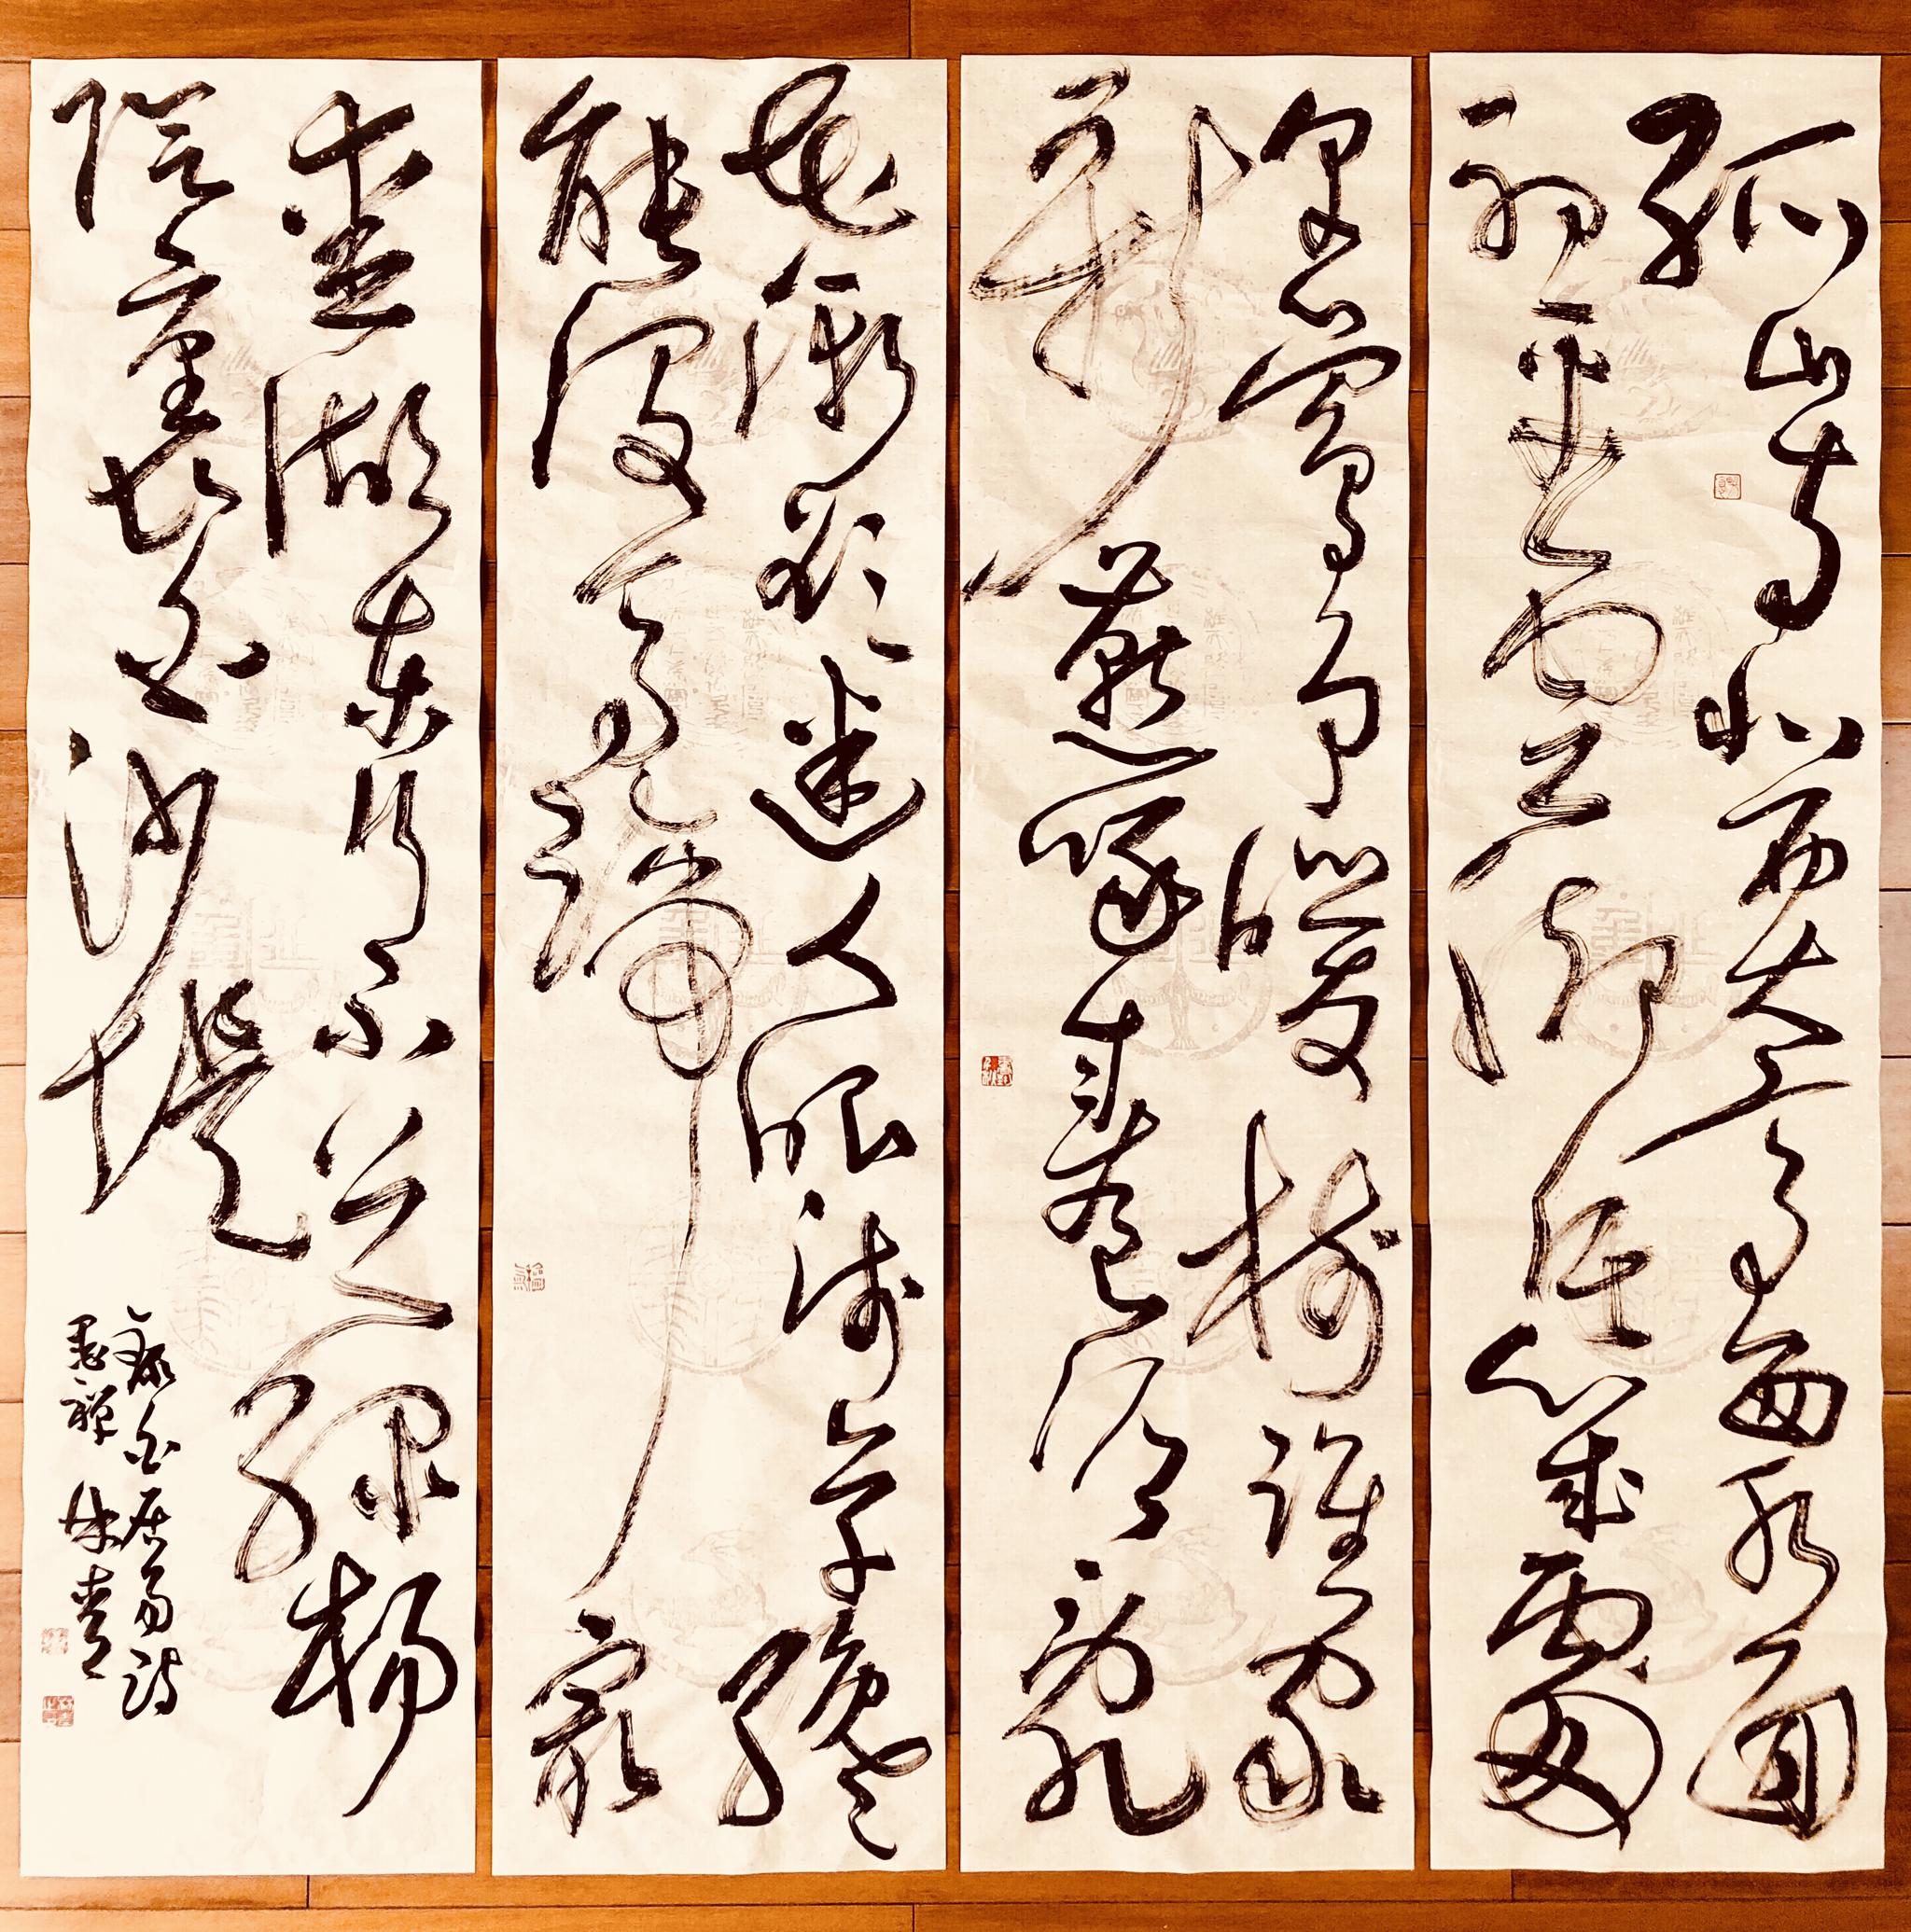 孤山寺北賈亭西水面
初平雲腳低幾處
早鶯爭暖樹誰家
新燕啄春泥亂
花漸欲迷人眼淺草纔
能沒馬蹄最
愛湖東行不足綠楊
陰裏白沙堤
錄白居易詩
墨禅